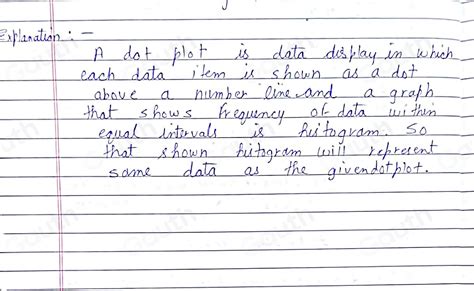 Explanation : -
A dot plot is data display in which
each data item is shown as a dot
above a number line and a graph
that shows frequency of data within
equal intervals is histogram. So
that shown histogram will represent
same data as the given dotplot.